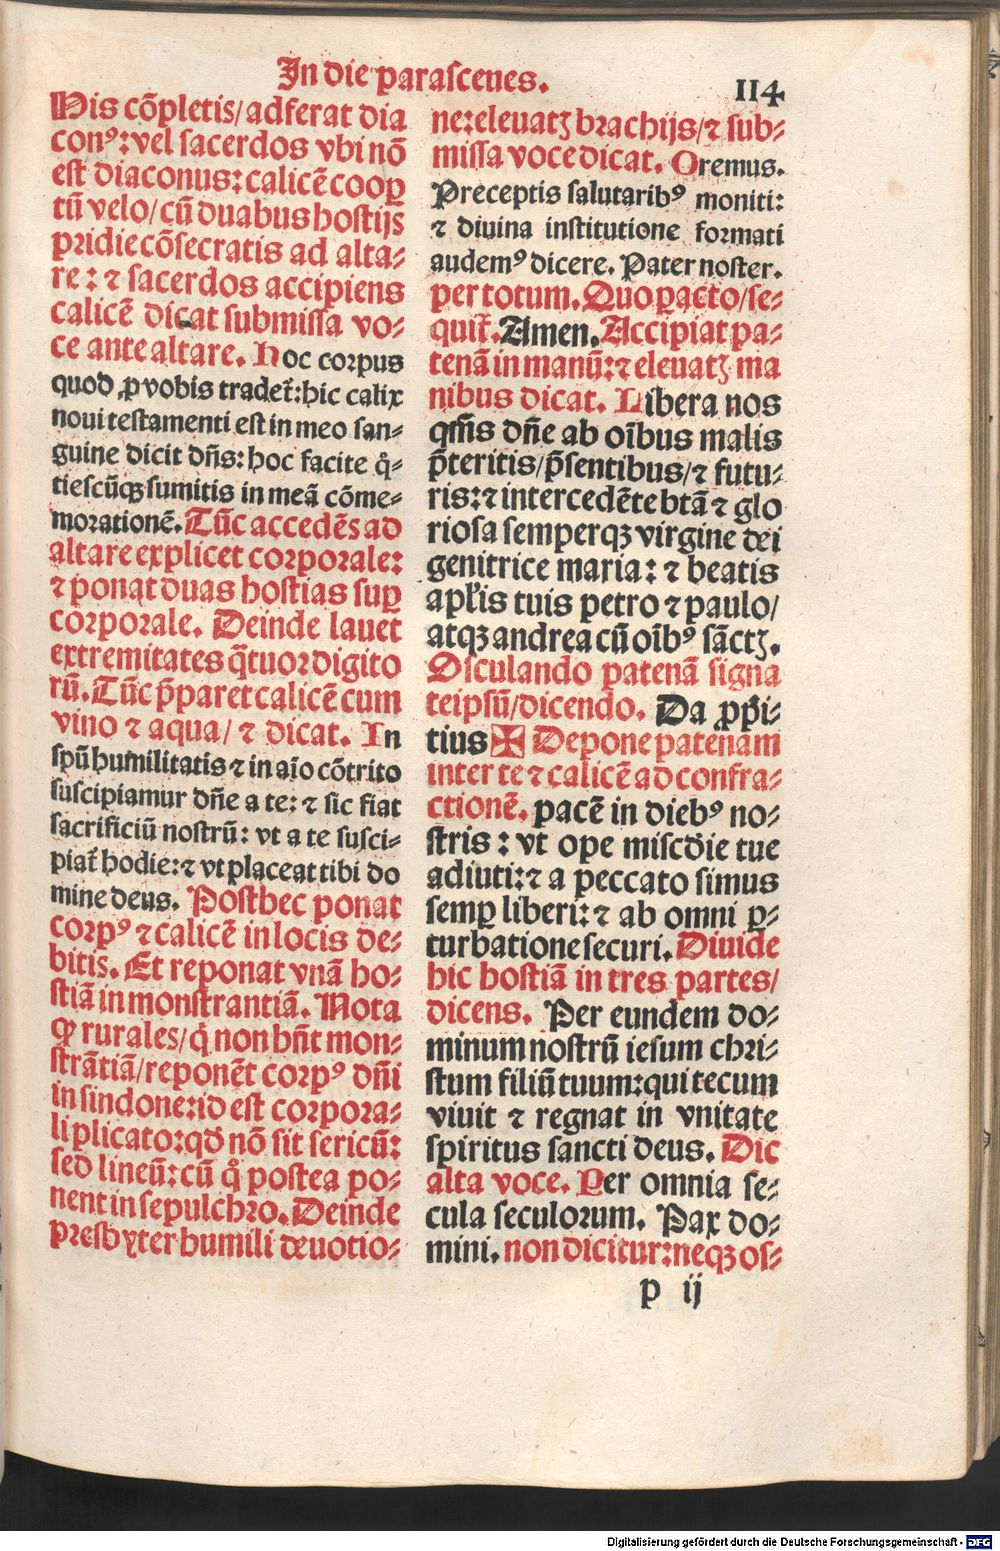 In die parasceues.
114
His cōpletis/ adferat dia
conꝰ: vel sacerdos vbi nō
est diaconus: calicē cooꝑ
tū velo/ cū duabus hostijs
pridie cōsecratis ad alta-
re: ⁊ sacerdos accipiens
calicē dicat submissa vo-
ce ante altare. Hoc corpus
quod ꝓ vobis tradet̄: hic calix
noui testamenti est in meo san-
guine dicit dn̄s: hoc facite q̊-
tiescūqꝫ sumitis in meā cōme-
morationē. Tūc accedēs ad
altare explicet corporale:
⁊ ponat duas hostias suꝑ
corporale. Deinde lauet
extremitates q̄tuor digito
rū. Tūc p̄paret calicē cum
vino ⁊ aqua/ ⁊ dicat. In
spū humilitatis ⁊ in aīo cōtrito
suscipiamur dn̄e a te: ⁊ sic fiat
sacrificiū nostrū: vt a te susci-
piat̄ hodie: ⁊ vt placeat tibi do
mine deus. Posthec ponat
corpꝰ ⁊ calicē in locis de-
bitis. Et reponat vnā ho-
stiā in monstrantiā. Nota
ꝙ rurales/ q̇ non hn̄t mon-
strātiā/ reponēt corpꝰ dn̄i
in sindone: id est corpora-
li plicato: qđ nō sit sericū:
sed lineū: cū q̊ postea po-
nent in sepulchro. Deinde
presbyter humili deuotio-
ne: eleuatꝫ brachijs/ ⁊ sub-
missa voce dicat. Oremus.
Preceptis salutaribꝰ moniti:
⁊ diuina institutione formati
audemꝰ dicere. Pater noster.
per totum. Quo ꝑacto/ se-
quit̄. Amen. Accipiat pa-
tenā in manū: ⁊ eleuatꝫ ma
nibus dicat. Libera nos
qm̄s dn̄e ab oībus malis
p̄teritis/ p̄sentibus/ ⁊ futu-
ris: ⁊ intercedēte btā ⁊ glo
riosa semperqꝫ virgine dei
genitrice maria: ⁊ beatis
apl̄is tuis petro ⁊ paulo/
atqꝫ andrea cū oībꝰ sāctꝫ.
Osculando patenā signa
teipsū/ dicendo. Da ꝓpi-
tius ✠ Depone patenam
inter te ⁊ calicē ad confra-
ctionē. pacē in diebꝰ no-
stris: vt ope miscđie tue
adiuti: ⁊ a peccato simus
semꝑ liberi: ⁊ ab omni ꝑ-
turbatione securi. Diuide
hic hostiā in tres partes/
dicens. Per eundem do-
minum nostrū iesum chri-
stum filiū tuum: qui tecum
viuit ⁊ regnat in vnitate
spiritus sancti deus. Dic
alta voce. Per omnia se-
cula seculorum. Pax do-
mini. non dicitur: neqꝫ os-
p ij
Digitalisierung gefördert durch die Deutsche Forschungsgemeinschaft - DFG